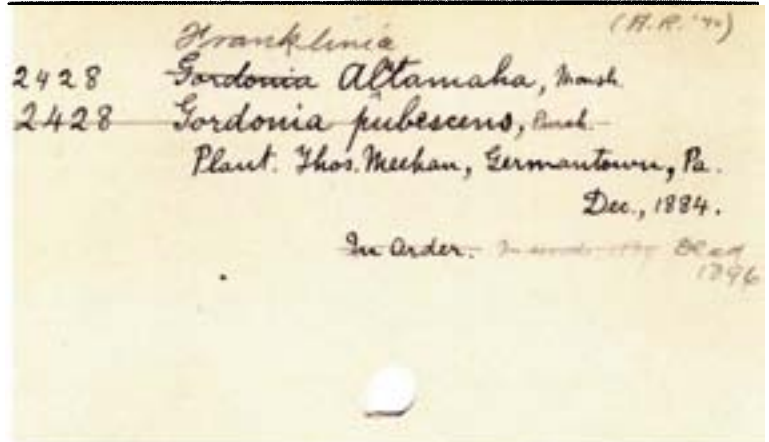 (A.R. '40)
Franklinia
2428 Gordonia Altamaha, Marsh.
2428 Gordonia pubescens, Pursh.
Plant. Thos. Meehan, Germantown, Pa.
Dec., 1884.
In Order. Dead
1896